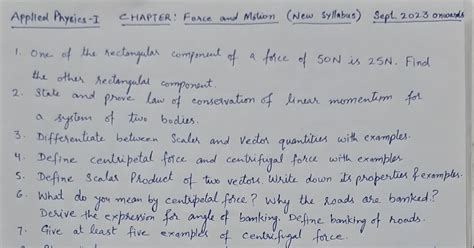 Applied Physics-I CHAPTER: Force and Motion (New Syllabus) Sept. 2023 onwards
1. One of the rectangular component of a force of 50N is 25N. Find
the other rectangular component.
2. State and prove law of conservation of linear momentum for
a system of two bodies.
3. Differentiate between Scalar and Vector quantities with examples.
4. Define centripetal force and centrifugal force with examples
5. Define Scalar Product of two vectors. Write down its properties & examples.
6. What do you mean by centripetal force? Why the roads are banked?
Derive the expression for angle of banking. Define banking of roads.
7. Give at least five examples of centrifugal force.